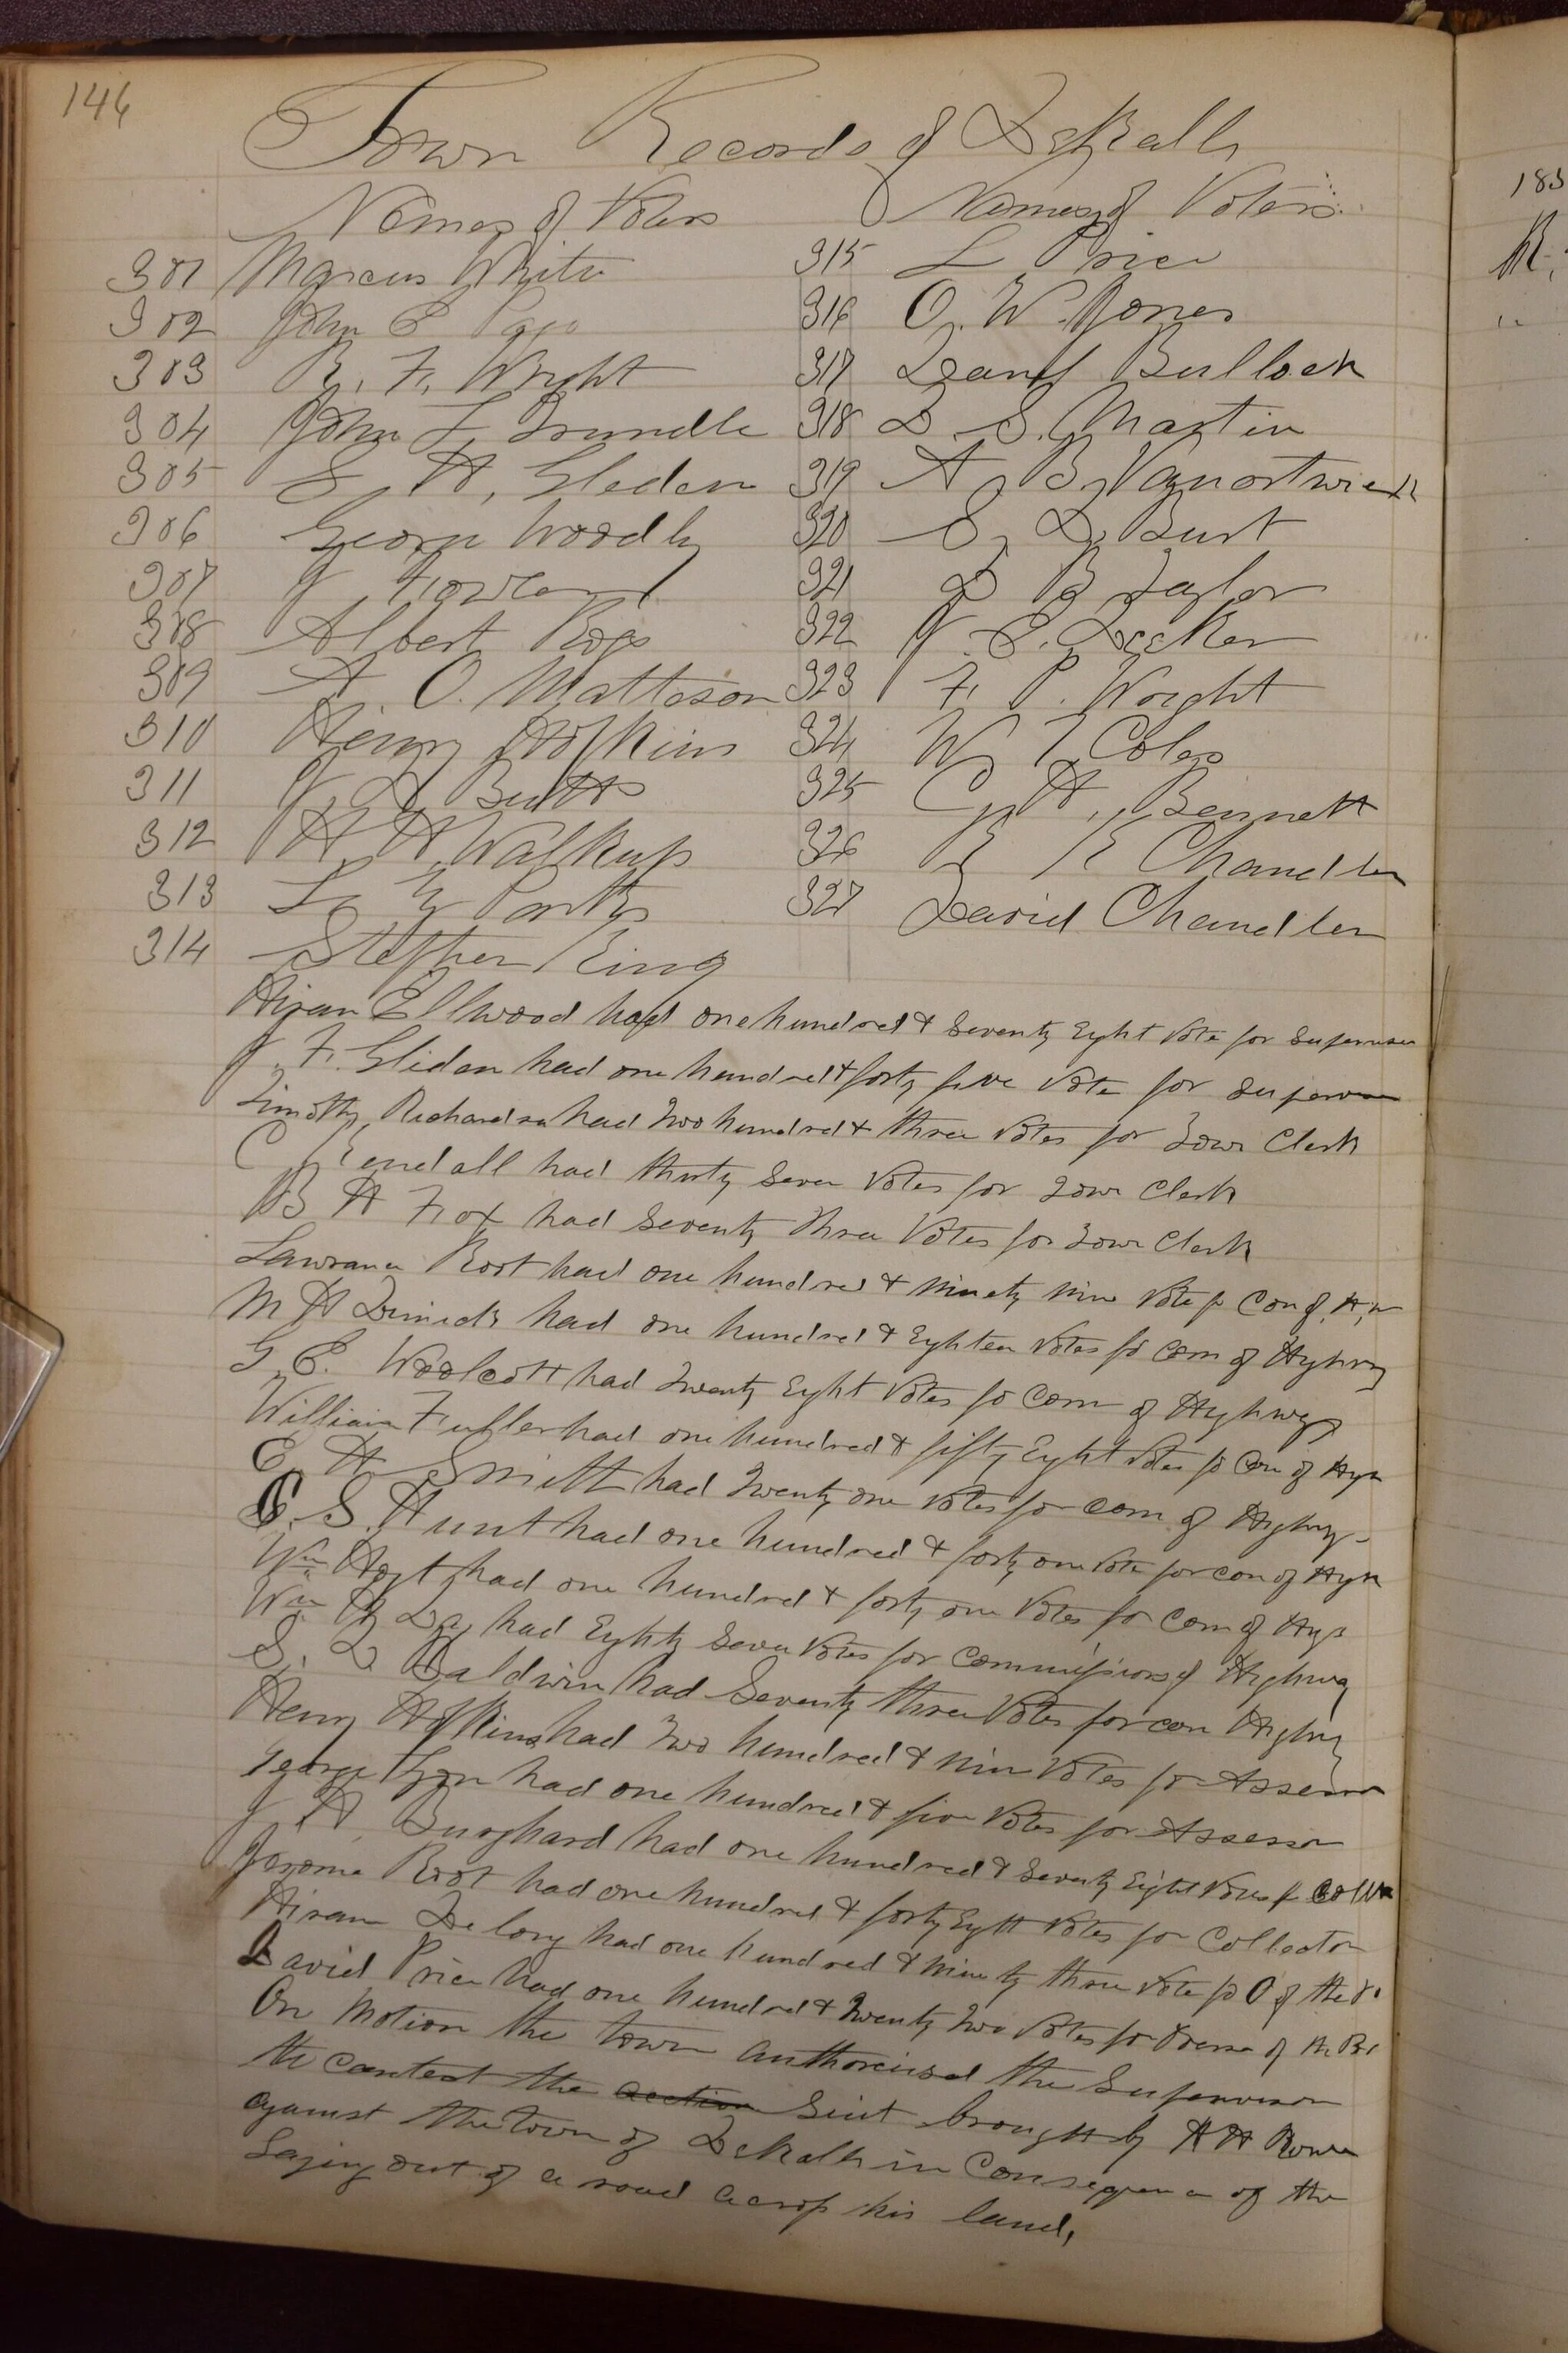 146
Town Records of DeKalb
Names of Voters
Names of Voters
301 Marcus White
302 John E Page
303 B. F. Wright
304 John F. Trundle
305 S. H. Gliden
306 George Woodly
307 J
308 Albert Rogs
309 A. O. Matteson
310 Henry Hopkins
311 J. D. Butts
312 H. H. Walkup
313 L. Y.
314 Stephen King
315 L Price
316 O. W. Jones
317 Bullock
318 D. S. Martin
319 A B Vanortwick
320 S, D. Burt
321 D B Taylor
322 J. E. Decker
323 F. P. Wright
324 W. T. Coles
325 C, H, Bennett
326 E Chandler
327 David Chandler
Hiram Ellwood had one hundred & Seventy Eght Vote for Supervisor
J. F. Gliden had one hundred & forty five Vote for Supervisor
Timothy Richardson had Two hundred & three Votes for Town Clerk
C Kendall had thirty Seven Votes for Town Clerk
B H Fox had Seventy three Votes for Town Clerk
Lawrance Root had one hundred & Ninety Nine Vote fo Con of. H,w
M H Dimick had one hundred & Eighteen Votes fo Com of Hyhwy
G, E. Woolcott had Twenty Eyht Votes fo Com of Hyhwy
William Fuller had one hundred & fifty Eyht Votes fo Com of Hyh
E, H Smith had Twenty one Votes for Com of Highwy
E. S. Hunt had one hundred & forty one Vote for Con of Hyh
Wm Hoyt had one hundred & forty one Votes for Com of Hyh
Wm had Eyhty Seven Votes for Commissions of Highway
S. D. Baldwin had Seventy three Votes for con Highwy
Henry Hopkins had Two hundred & Nine Votes for Assessor
George Lyon had one hundred & five Votes for Assessor
J. A. Burghard had one hundred & Seventy Eight Votes fo Coll
Jerome Root had one hundred & forty Eyht Votes for Collector
Hiram Delong had one hundred & Ninety three Vote fo O of the P.
David Price had one hundred & Twenty Two Votes for Oversee of the
On Motion the town authorised the Supervisor
to contest the action Suit brought by H H Rowe
against the town of DeKalb in Consequence of the
Laying out of a road across his land,
183